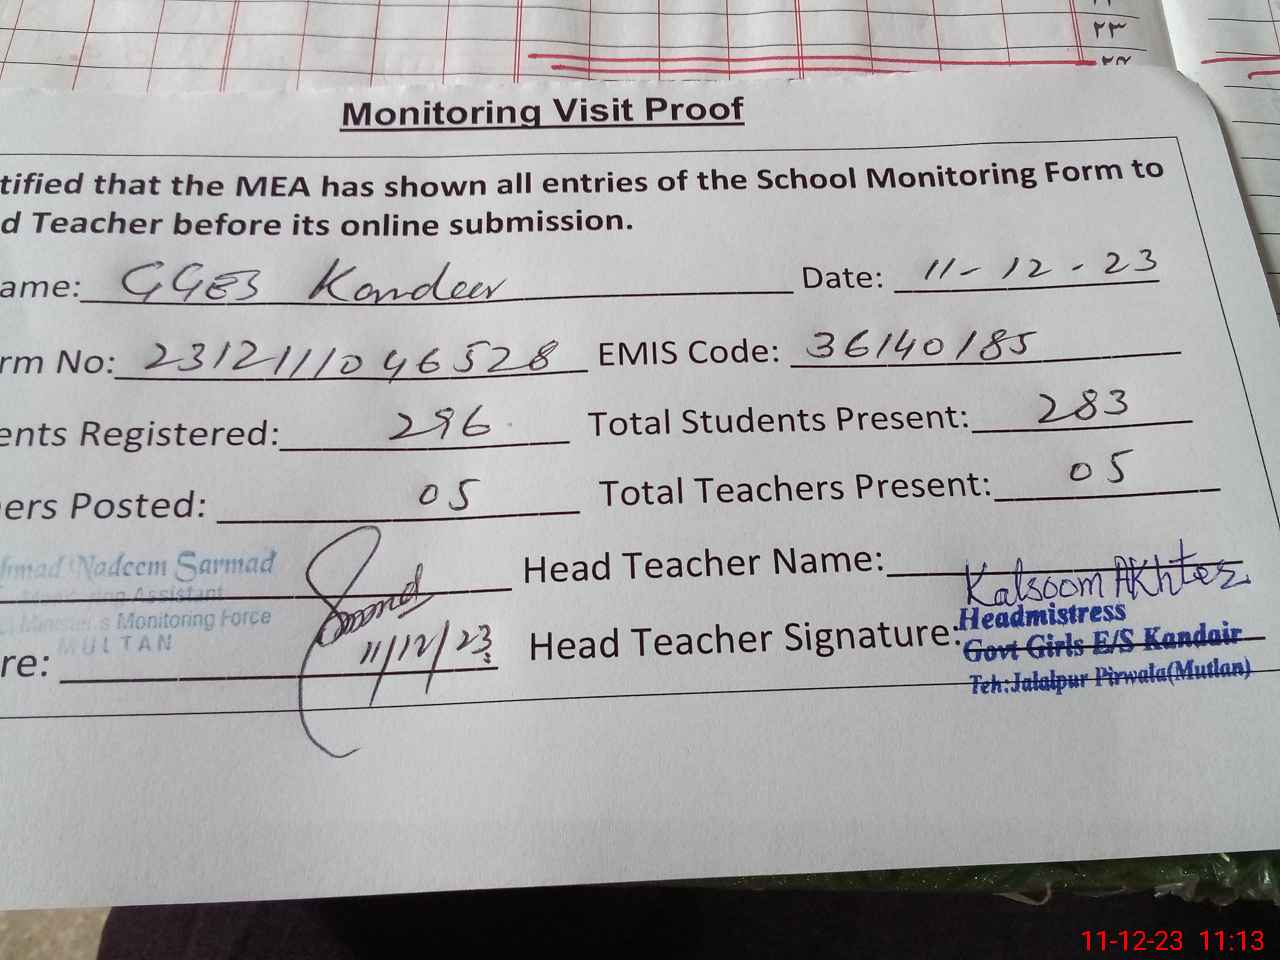 ۲۳
Monitoring Visit Proof
tified that the MEA has shown all entries of the School Monitoring Form to
d Teacher before its online submission.
ame: GGES Kandeer Date: 11-12-23
rm No: 231211104 6528 EMIS Code: 36140185
ents Registered: 296 Total Students Present: 283
ers Posted: 05 Total Teachers Present: 05
Nadeem Sarmad Head Teacher Name: Kalsoom Akhter
Assistant
Monitoring Force
MULTAN
re: 11/12/23 Head Teacher Signature: Headmistress
Govt Girls E/S Kandair
Teh:Jalalpur Pirwala(Mutlan)
11-12-23 11:13